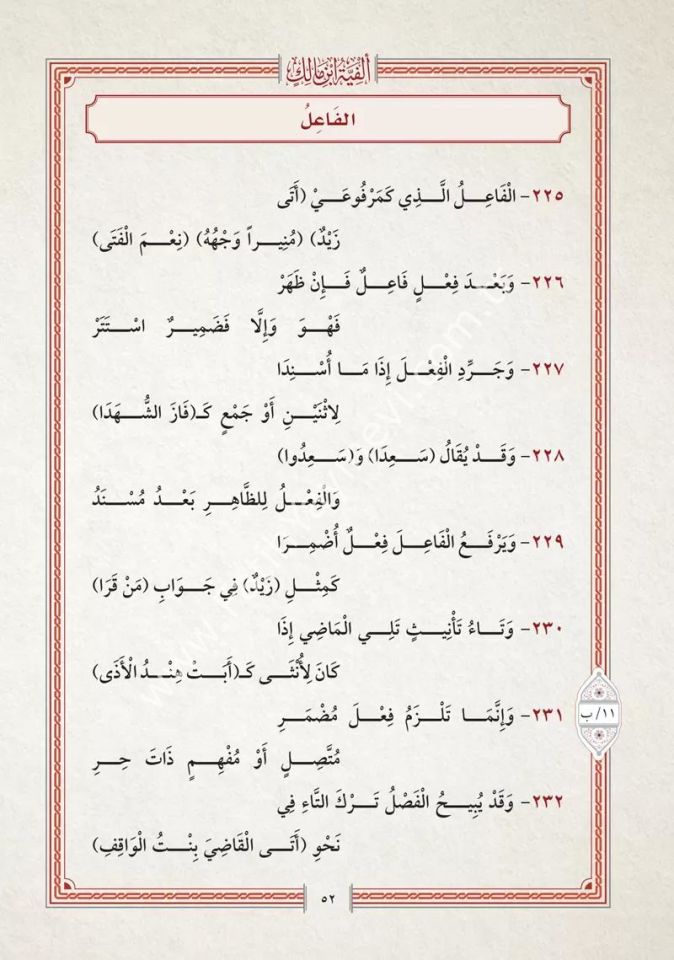 ألفية ابن مالك
الفَاعِلُ
٢٢٥- الْفَاعِلُ الَّذِي كَمَرْفُوعَيْ (أَتَى
زَيْدٌ) (مُنِيراً وَجْهُهُ) (نِعْمَ الْفَتَى)
٢٢٦- وَبَعْدَ فِعْلٍ فَاعِلٌ فَإِنْ ظَهَرْ
فَهْوَ وَإِلَّا فَضَمِيرٌ اسْتَتَرْ
٢٢٧- وَجَرِّدِ الْفِعْلَ إِذَا مَا أُسْنِدَا
لِاثْنَيْنِ أَوْ جَمْعٍ كَـ(فَازَ الشُّهَدَا)
٢٢٨- وَقَدْ يُقَالُ (سَعِدَا) وَ(سَعِدُوا)
وَالْفِعْلُ لِلظَّاهِرِ بَعْدُ مُسْنَدُ
٢٢٩- وَيَرْفَعُ الْفَاعِلَ فِعْلٌ أُضْمِرَا
كَمِثْلِ (زَيْدٌ) فِي جَوَابِ (مَنْ قَرَا)
٢٣٠- وَتَاءُ تَأْنِيثٍ تَلِي الْمَاضِي إِذَا
كَانَ لِأُنْثَى كَـ(أَبَتْ هِنْدُ الْأَذَى)
٢٣١- وَإِنَّمَا تَلْزَمُ فِعْلَ مُضْمَرِ
مُتَّصِلٍ أَوْ مُفْهِمٍ ذَاتَ حِرِ
١١/ب
٢٣٢- وَقَدْ يُبِيحُ الْفَصْلُ تَرْكَ التَّاءِ فِي
نَحْوِ (أَتَى الْقَاضِيَ بِنْتُ الْوَاقِفِ)
٥٢